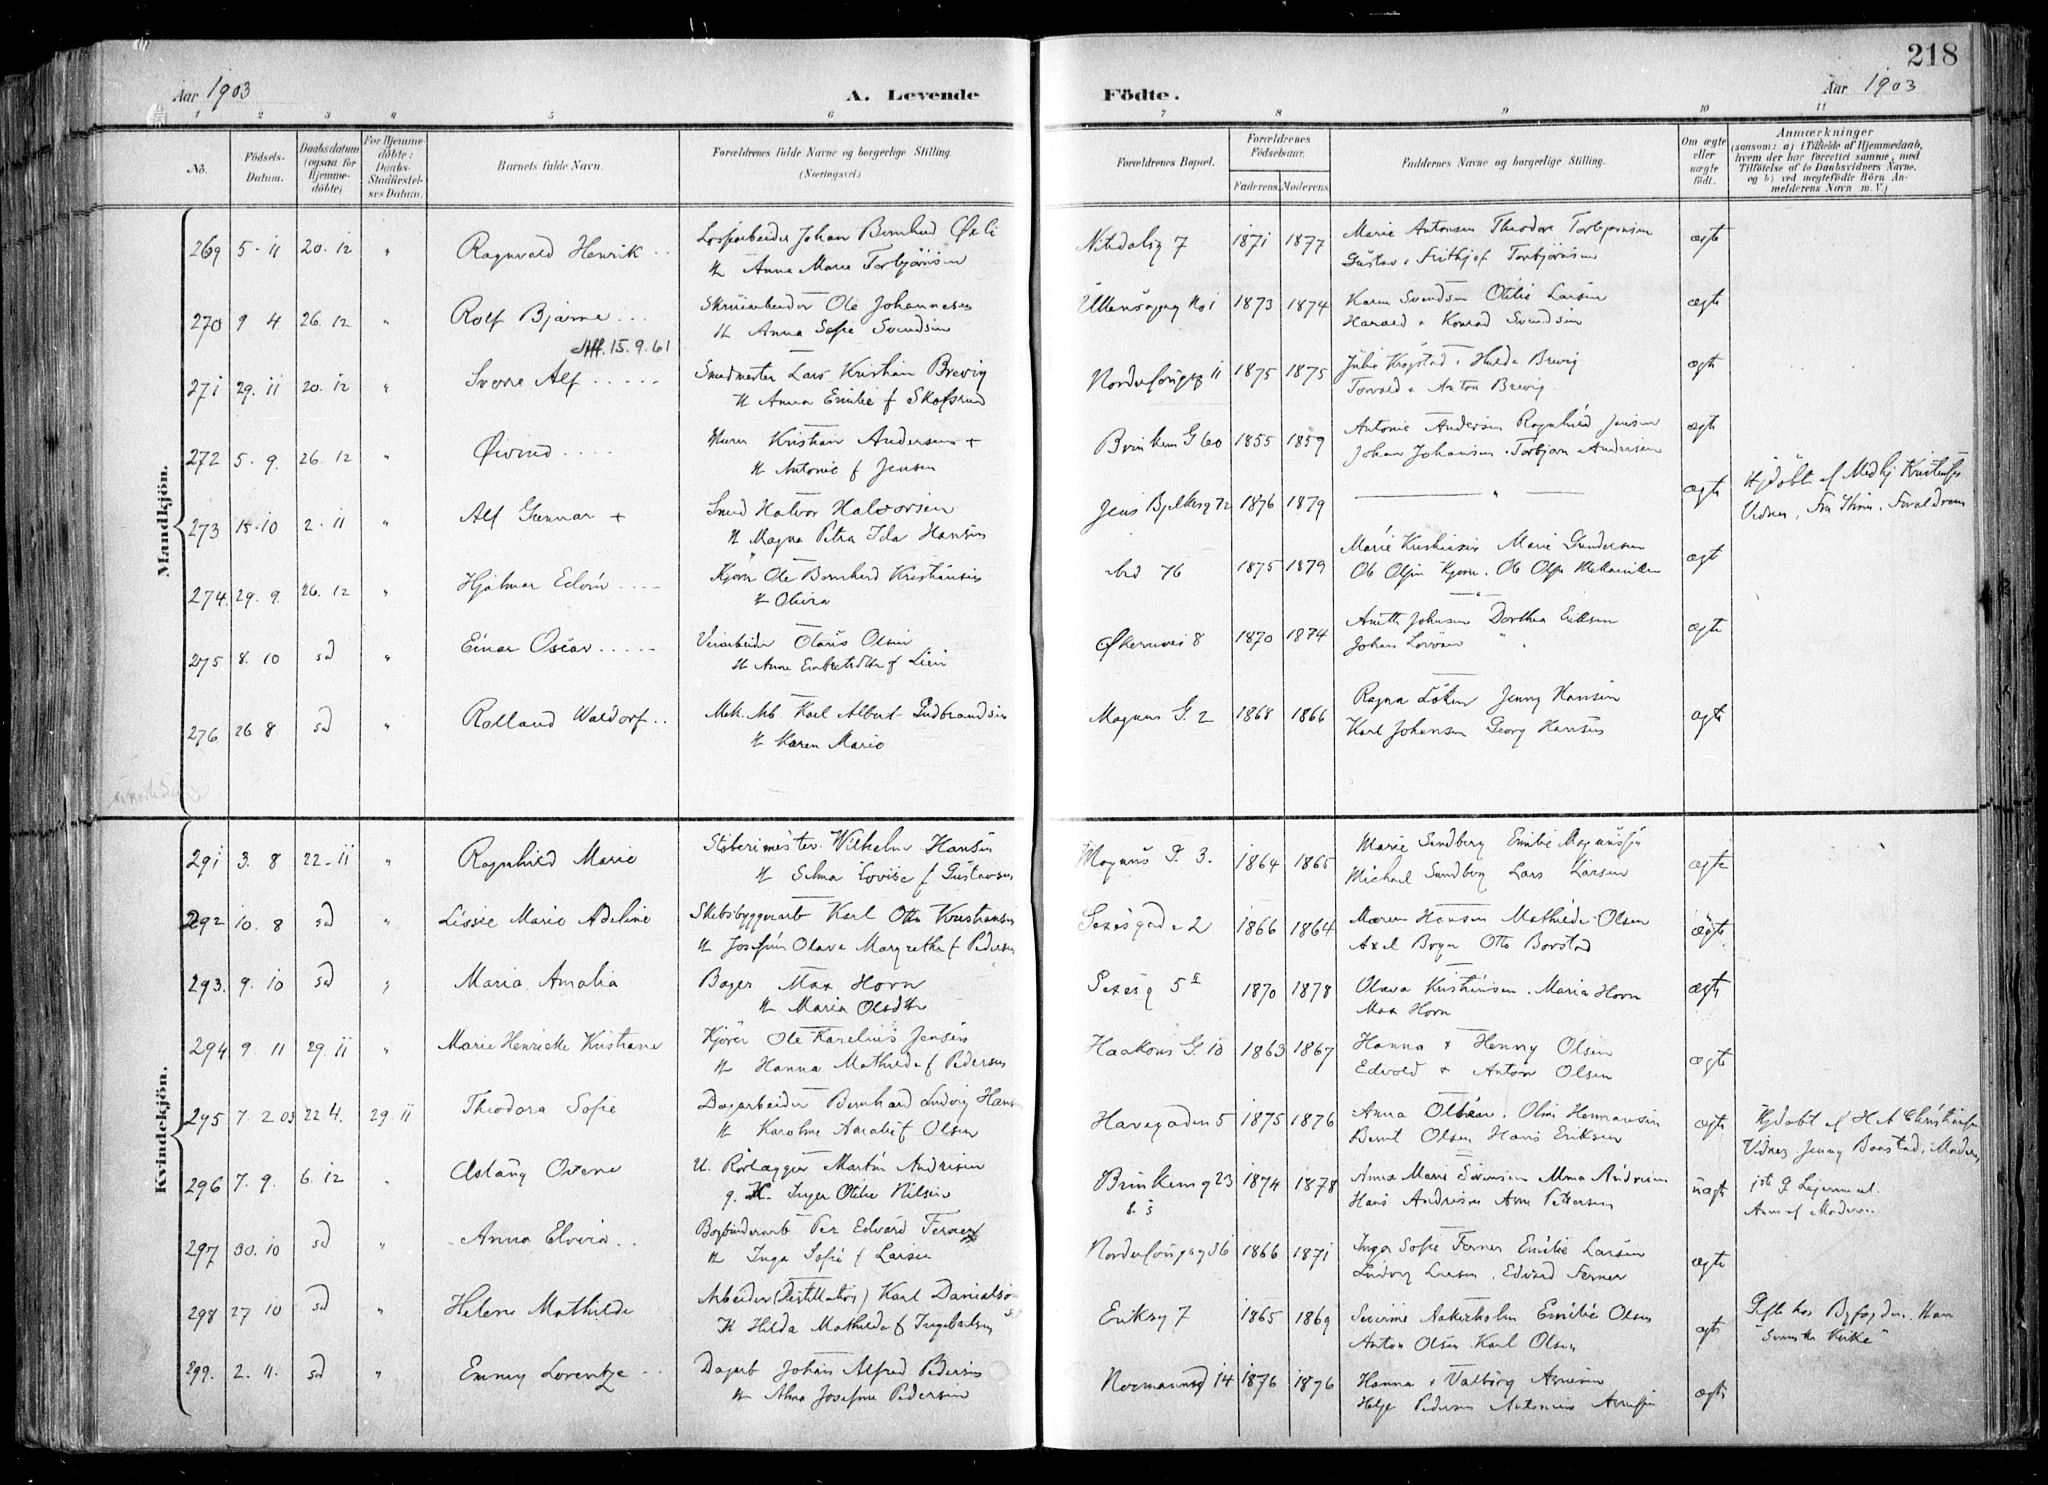 218
Aar 1903
A. Levende
Födte.
Aar 1903
1 2 3 4 5 6 7 8 9 10 11
No.
Födsels-Datum.
Daabsdatum (ogsaa for Hjemmedöbte)
For Hjemmedöbte: Daabs-Stadfæstelses Datum.
Barnets fulde Navn.
Forældrenes fulde Navne og borgerlige Stilling. (Næringsvei.)
Forældrenes Bopæl.
Forældrenes Födselsaar.
Faderens. Moderens.
Faddernes Navne og borgerlige Stilling.
Om ægte eller uægte født.
Anmærkninger
(saasom: a) i Tilfælde af Hjemmedaab, hvem der har forrettet samme, med Tilföielse af to Daabsvidners Navne, og b) ved uægtefödte Börn Anmelderens Navn m. V.)
Mandkjön.
269 5-11 20.12 " Ragnvald Henrik Johan Bernhard H Anna Marie Torbjörnsen Nitedalsg 7 1871 1877 Marie Antonsen Theodora Torbjörnsen Gustav & Frithjof Torbjörnsen ægte
270 9 4 26.12 " Rolf Bjarne Ole Johannesen H Anna Sofie Svendsen Ullensagerg No 1 1873 1874 Karen Svendsen Otilie Larsen Harald & Konrad Svendsen ægte
15.9.61
271 29.11 20.12 " Sverre Alf Smedmester Lars Kristian Brevig H Anna Emilie f 11 1875 1875 Julie Krogstad & Hulda Brevig Torvald & Anton Brevig ægte
272 5.9. 26.12 " Øivind Murer Kristian Andersen + H Antonie f Jensen Brinkens G 60 1855 1859 Antonie Andersen Ragnhild Jensen Johan Johansen. Torbjørn Andersen ægte
273 15-10 2.11 " Alf Gunnar + Smed Halvor Halvorsen H Magna Petra Ida Hansen Jens Bjelkesg 72 1876 1879 " ægte Hjdöbt af
274. 29.9. 26.12 " Hjalmar Edvin Kjörer Ole Bernhard Kristiansen H Olivia ibid 76 1875 1879 Marie Kristiansen Marie Gundersen Ole Olsen Kjører. Ole Olsen Mekaniker ægte
275 8.10 sd " Einar Oscar Olaus Olsen H Anne Embretsdtr f Lien Økernvei 8 1870 1874 Anette Johnsen Dorthea Eriksen Johan " ægte
276 26 8 sd " Rolland Waldorf Mek. Arb. Karl Albert Gudbrandsen H Karen Marie Magnus G. 2 1868 1866 Ragna Løken Jenny Hansen Karl Johansen Georg Hansen ægte
Kvindekjön.
291 3.8 22-11 " Ragnhild Marie Støberimester Wilhelm Hansen H Selma Lovise f Gustavsen Magnus G. 3. 1864 1865 Marie Sundberg Emilie Magnussen Michael Sundberg Lars Larsen ægte
292 10.8 sd " Lissie Marie Adeline Skibsbyggerarb Karl Otto Kristiansen H Josefine Olava Margrethe f Pedersen Sexesgade 2 1866 1864 Maren Hansen Mathilde Olsen Axel Bryn Otto Borstad ægte
293. 9.10 sd " Maria Amalia Bager Max Horn H Maria Olsdtr Sexesg 5 II 1870 1878 Olava Kristiansen. Maria Horn Max Horn ægte
294 9 11 29 11 " Marie Henriette Kristiane Kjörer Ole Karelius Jensen H Hanna Mathilde f Pedersen Haakons G. 10 1863 1867 Hanna & Henny Olsen Edvald & Anton Olsen ægte
295 7.2 03 22 4. 29 11 Theodora Sofie Dagarbeider Bernhard Ludvig Hansen H Karoline Amalie f Olsen Havegaden 5 1875 1876 Anna Bernt Olsen Hans Eriksen ægte Hjdøbt af Vidner Jenny Moderen
296 7.9. 6.12 " Aslaug Oxene U. Rörlægger Martin Andresen g. H. Inger Otilie Nilsen Brinkensg 23 1874 1878 Anna Marie Sörensen Alma Andresen Hans Andresen Arne Pettersen uægte jst g. Leiermaal. Anm af Moderen
297 30.10 sd " Anna Elvira Bogbinderarb Per Edvard Ferner H Inga Sofie f Larsen 36 1866 1871 Inga Sofie Ferner Emilie Larsen Ludvig Larsen. Edvard Ferner ægte
298 27 10 sd " Helene Mathilde Arbeider (Destillatör) Karl Danielsen H Hilda Mathilde f Ingebretsen Eriksg 7 1865 1869 Severine Aakerholm Emilie Olsen Anton Olsen. Karl Olsen ægte Gift hos Byfogden. Han "Svenske Kirke"
299. 2.11. sd " Emmy Lorentze Dagarb Johan Alfred Pedersen H Alma Josefine Pedersen Normannsg 14 1876 1876 Hanna & Valborg Arnesen Helge Pedersen Antonius Arnesen ægte